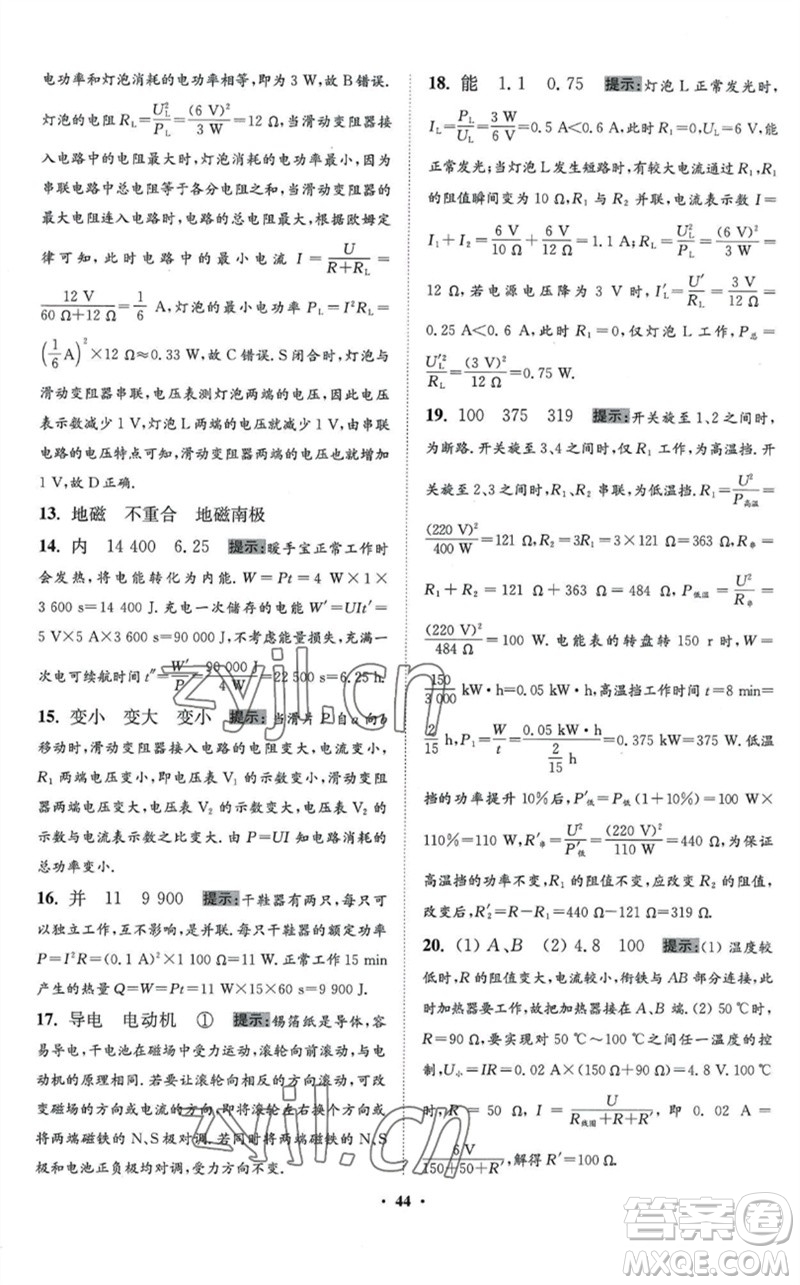 电功率和灯泡消耗的电功率相等,即为 3 W,故 B 错误.
灯泡的电阻 R_L=U_L²/P_L=(6 V)²/3 W=12 Ω,当滑动变阻器接
入电路中的电阻最大时,灯泡消耗的电功率最小,因为
串联电路中总电阻等于各分电阻之和,当滑动变阻器的
最大电阻连入电路时,电路的总电阻最大,根据欧姆定
律可知,此时电路中的最小电流 I=U/(R+R_L)=
12 V/(60 Ω+12 Ω)=1/6 A,灯泡的最小电功率 P_L=I²R_L=
(1/6 A)²×12 Ω≈0.33 W,故 C 错误.S 闭合时,灯泡与
滑动变阻器串联,电压表测灯泡两端的电压,因电压表
示数减少 1 V,灯泡 L 两端的电压减小 1 V,由串联
电路的电压特点可知,滑动变阻器两端的电压增大
1 V,故 D 正确.
13. 地磁 不重合 地磁南极
14. 内 14 400 6.25 提示:暖手宝正常工作时
会发热,将电能转化为内能.W=Pt=4 W×1×
3 600 s=14 400 J.充电一次储存的电能 W′=UIt′=
5 V×5 A×3 600 s=90 000 J.不考虑能量损失,充满
一次电可续航时间 t″=W′/P=90 000 J/4 W=22 500 s=6.25 h.
15. 变小 变大 变小 提示:当滑片 P 自 a 向 b
移动时,滑动变阻器接入电路的电阻变大,电流变小,
R₁ 两端电压变小,即电压表 V₁ 的示数变小,滑动变
阻器两端电压变大,即电压表 V₂ 的示数变大,V₂ 的
示数与电流表示数之比变大.由 P=UI 知电路消耗的
总功率变小.
16. 并 11 9 900 提示:干鞋器有两只,每只可
以独立工作,互不影响,是并联.干鞋器的额定功率
P=I²R=(0.1 A)²×1 100 Ω=11 W.正常工作 15 min
产生的热量 Q=W=Pt=11 W×900 s=9 900 J.
17. 导电 电动机 ① 提示:锡箔纸是导体,容易
导电,干电池在磁场中受力运动,滚轮向前滚动,与电
动机的原理相同.若要让滚轮向相反的方向滚动,可改
变磁场的方向或电流的方向,即将滚轮左右换个方向或
将两端磁铁的 N、S 极对调.若同时将两端磁铁的 N、S
极和电池正负极均对调,受力方向不变.
18. 能 1.1 0.75 提示:灯泡 L 正常发光时,
I_L=P_L/U_L=3 W/6 V=0.5 A<0.6 A,R_L=0,U_L=6 V,能
正常发光;当灯泡 L 发生短路时,有较大电流通过 R₁,R₁
的阻值瞬间变为 10 Ω,R₁ 与 R₂ 并联,电流表示数 I=
I₁+I₂=6 V/10 Ω+6 V/12 Ω=1.1 A;R_L=U_L²/P_L=(6 V)²/3 W=
12 Ω,若电源电压降为 3 V 时,I′_L=U′/R_L=3 V/12 Ω=
0.25 A<0.6 A,R₁=0,仅灯泡 L 工作,P_总=
U′_L²/R_L=(3 V)²/12 Ω=0.75 W.
19. 100 375 319 提示:开关旋至 1、2 之间时,
为断路.开关旋至 3、4 之间时,仅 R₁ 工作,为高温挡.开
关旋至 2、3 之间时,R₁、R₂ 串联,为低温挡.R₁=U²/P_高温=
(220 V)²/400 W=121 Ω,R₂=3R₁=3×121 Ω=363 Ω,R_串=
R₁+R₂=121 Ω+363 Ω=484 Ω,P_低温=U²/R_串=
(220 V)²/484 Ω=100 W.电能表的转盘转 150 r 时,W=
150/3 000 kW·h=0.05 kW·h,高温挡工作时间 t=8 min=
2/15 h,P₁=W/t=0.05 kW·h/(2/15 h)=0.375 kW=375 W.低温
挡的功率提升 10%后,P′_低=P_低(1+10%)=100 W×
110%=110 W,R′_串=U²/P′_低=(220 V)²/110 W=440 Ω,为保证
高温挡的功率不变,R₁ 的阻值不变,应改变 R₂ 的阻值,
改变后 R₂′=R−R₁=440 Ω−121 Ω=319 Ω.
20. (1) A、B (2) 4.8 100 提示:(1) 温度较
低时,R 的阻值变大,电流较小,衔铁与 AB 部分连接,此
时加热器要工作,故加热器接在 A、B 端.(2) 50 ℃时,
R=90 Ω,要实现对 50 ℃～100 ℃之间任一温度的控
制,U_小=IR=0.02 A×(150 Ω+90 Ω)=4.8 V.100 ℃
时,R=50 Ω,I=U/(R_线圈+R+R′),即 0.02 A=
6 V/(150+50+R′),解得 R′=100 Ω.
· 44 ·
zyjl.cn
zyjl.cn
答案卷
MXQE.COM